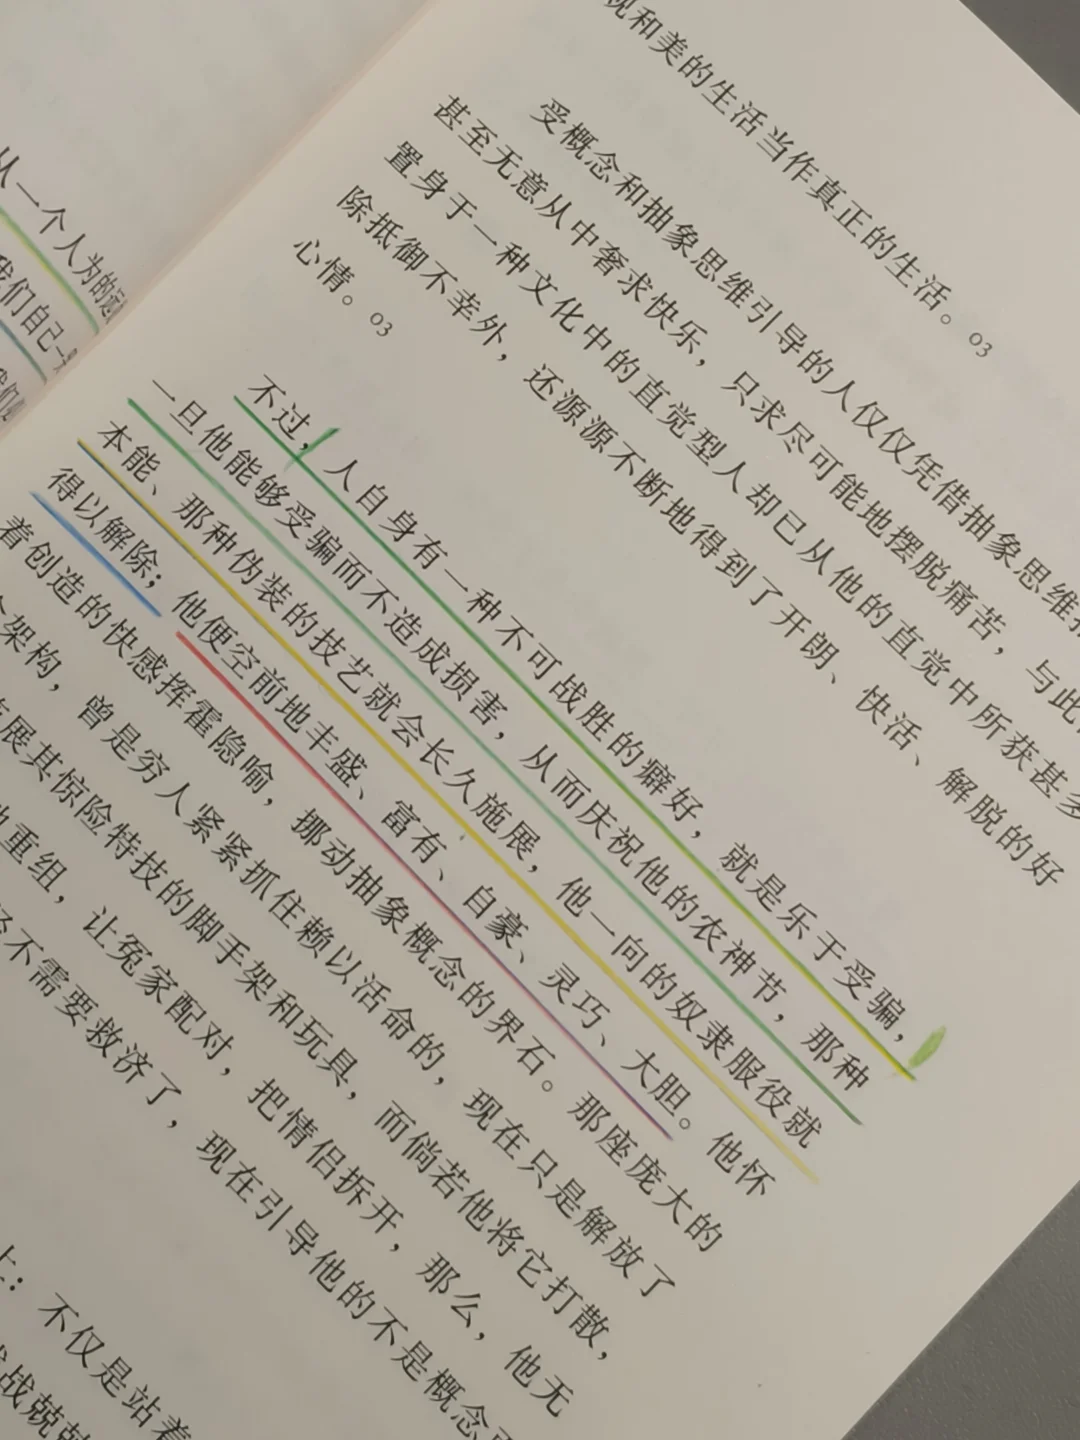 从一个人为的远
我们自己一
我们是
视和美的生活当作真正的生活。03
受概念和抽象思维引导的人仅仅凭借抽象思维抵
甚至无意从中奢求快乐，只求尽可能地摆脱痛苦，与此
置身于一种文化中的直觉型人却已从他的直觉中所获甚多
除抵御不幸外，还源源不断地得到了开朗、快活、解脱的好
心情。03
不过，人自身有一种不可战胜的癖好，就是乐于受骗，
一旦他能够受骗而不造成损害，从而庆祝他的农神节，那种
本能、那种伪装的技艺就会长久施展，他一向的奴隶服役就
得以解除；他便空前地丰盛、富有、自豪、灵巧、大胆。他怀
着创造的快感挥霍隐喻，挪动抽象概念的界石。那座庞大的
架构，曾是穷人紧紧抓住赖以活命的，现在只是解放了
展其惊险特技的脚手架和玩具，而倘若他将它打散，
重组，让冤家配对，把情侣拆开，那么，他无
不需要救济了，现在引导他的不是概念
上：不仅是站着
战兢兢